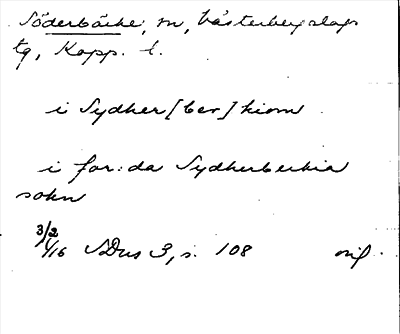 Söderbärke, sn, Västerbergslags
tg, Kopp. l.
i Sydher[ber]kiom
i for:da Sydherberkia
sokn
3/2 1/16 SDns 3, s. 108 orig.